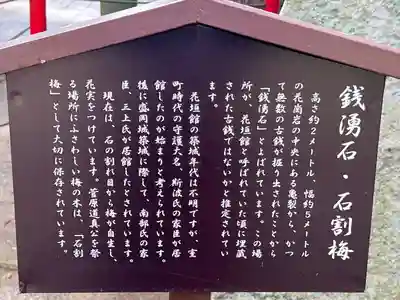 銭湧石・石割梅
高さ約2メートル、幅約5メートル
の花崗岩の中央にある亀裂から、かつ
て無数の古銭が掘り出されたことから
「銭湧石」とよばれています。この場
所が、花垣館と呼ばれていた頃に埋蔵
された古銭ではないかと推定されてい
ます。
花垣館の築城年代は不明ですが、室
町時代の守護大名、斯波氏の家臣が居
館したのが始まりと考えられています。
後に盛岡城築城に際して、南部氏の家
臣、三上氏が居館したとされています。
現在は、石の割れ目から梅が自生し、
花実をつけています。菅原道真公を祭
る場所にふさわしい梅の木は、「石割
梅」として大切に保存されています。